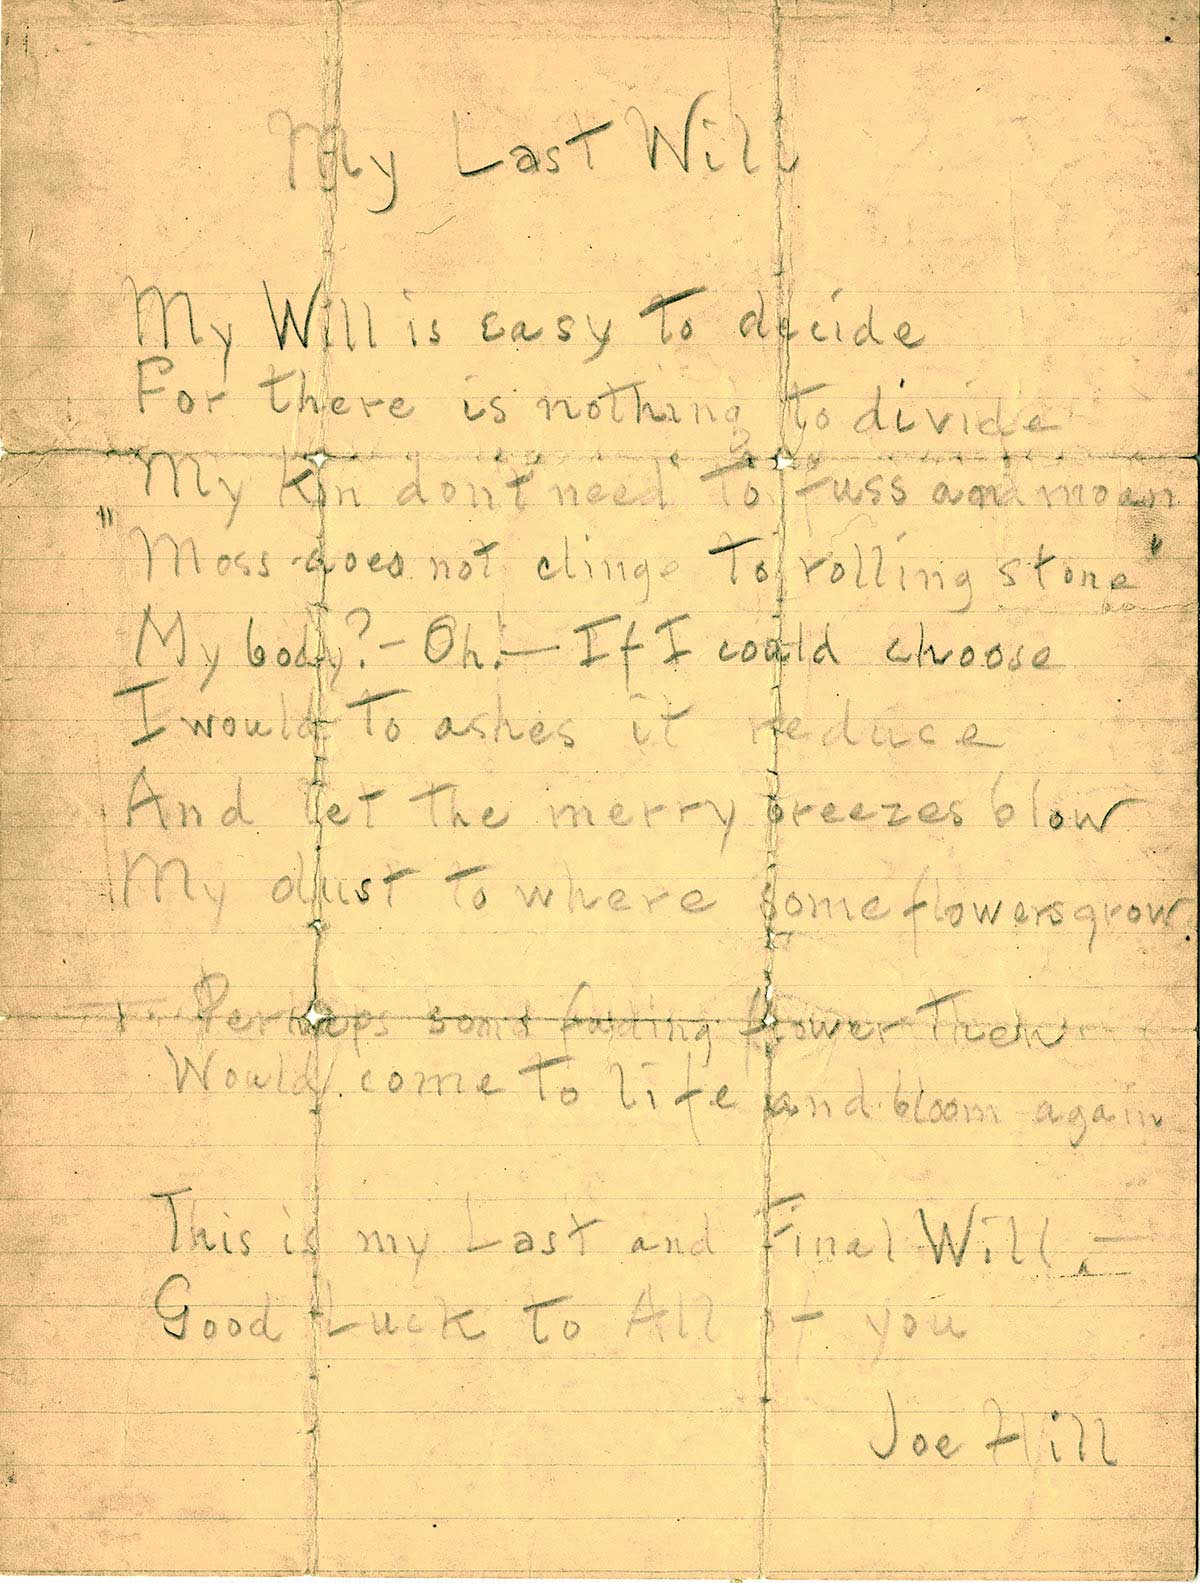 My Last Will
My Will is easy to decide
For there is nothing to divide
My kin don't need to fuss and moan
"Moss does not clinge to rolling stone"
My body? – Oh! – If I could choose
I would to ashes it reduce
And let the merry breezes blow
My dust to where some flowers grow.
Perhaps some fading flower then
Would come to life and bloom again
This is my Last and Final Will. –
Good Luck to All of you
Joe Hill